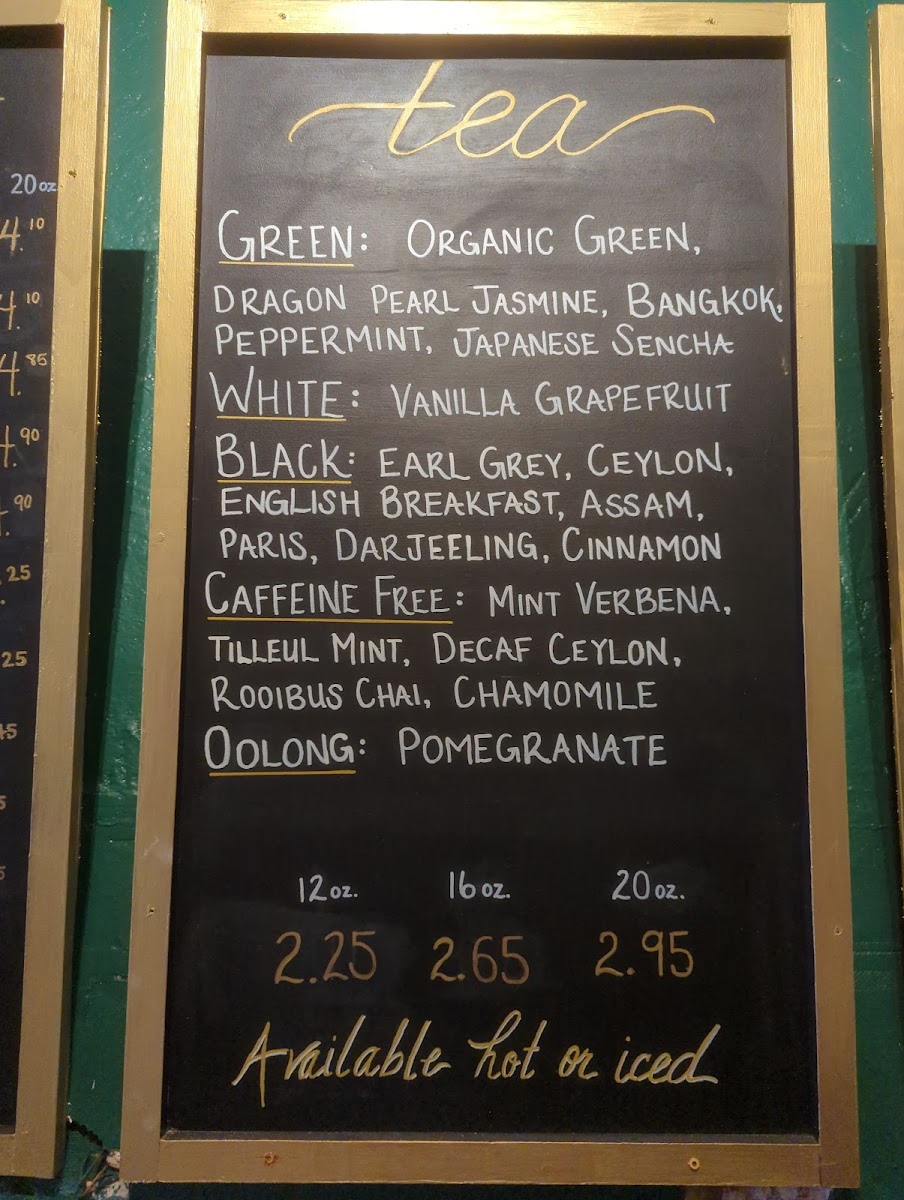 tea
GREEN: ORGANIC GREEN,
DRAGON PEARL JASMINE, BANGKOK,
PEPPERMINT, JAPANESE SENCHA
WHITE: VANILLA GRAPEFRUIT
BLACK: EARL GREY, CEYLON,
ENGLISH BREAKFAST, ASSAM,
PARIS, DARJEELING, CINNAMON
CAFFEINE FREE: MINT VERBENA,
TILLEUL MINT, DECAF CEYLON,
ROOIBUS CHAI, CHAMOMILE
OOLONG: POMEGRANATE
12 oz. 16 oz. 20 oz.
2.25 2.65 2.95
Available hot or iced
20 oz
4.10
4.10
4.85
.90
.90
.25
25